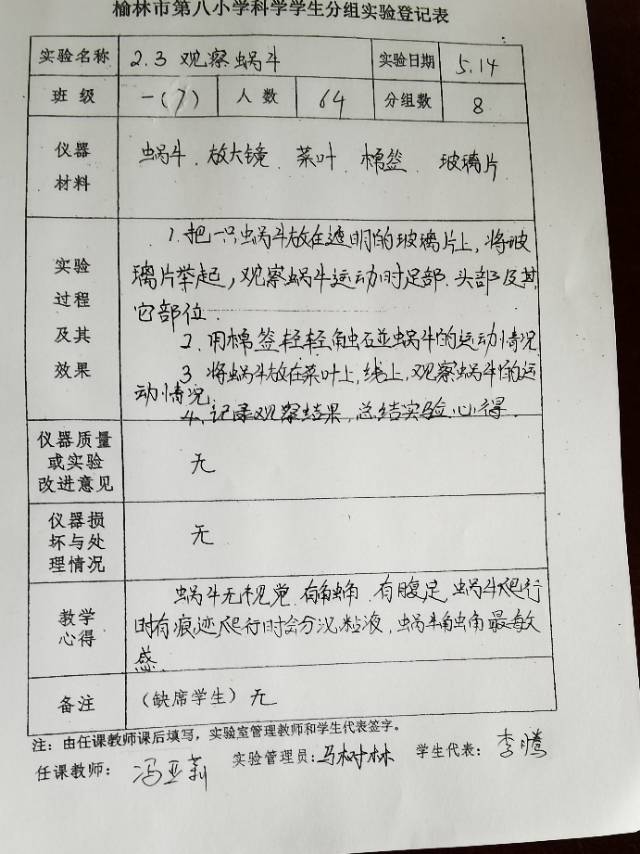 榆林市第八小学科学学生分组实验登记表
实验名称 2.3 观察蜗牛 实验日期 5.14
班级 一(7) 人数 64 分组数 8
仪器材料 蜗牛 放大镜 菜叶 棉签 玻璃片
实验过程及其效果
1.把一只蜗牛放在透明的玻璃片上,将玻
璃片举起,观察蜗牛运动时足部.头部及其
它部位.
2.用棉签轻轻触碰蜗牛的运动情况
3.将蜗牛放在菜叶上,线上,观察蜗牛的运
动情况.
4.记录观察结果,总结实验心得.
仪器质量或实验改进意见 无
仪器损坏与处理情况 无
教学心得
蜗牛无视觉.有触角.有腹足,蜗牛爬行
时有痕迹,爬行时会分泌粘液,蜗牛触角最敏
感.
备注 (缺席学生) 无
注:由任课教师课后填写,实验室管理教师和学生代表签字。
任课教师: 冯亚莉 实验管理员:马树林 学生代表: 李腾